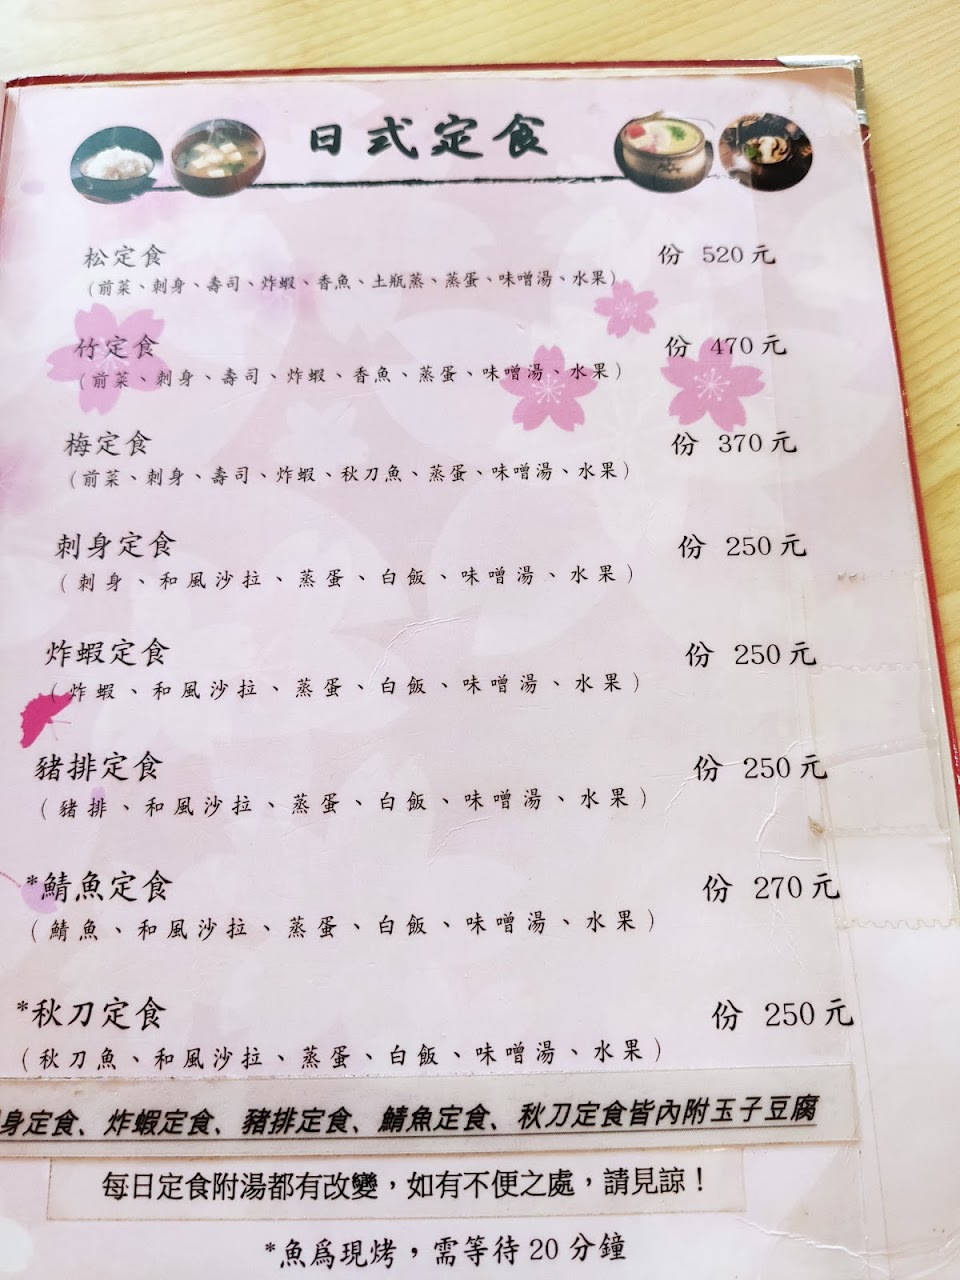 日式定食
松定食 份 520 元
(前菜、刺身、壽司、炸蝦、香魚、土瓶蒸、蒸蛋、味噌湯、水果)
竹定食 份 470 元
(前菜、刺身、壽司、炸蝦、香魚、蒸蛋、味噌湯、水果)
梅定食 份 370 元
(前菜、刺身、壽司、炸蝦、秋刀魚、蒸蛋、味噌湯、水果)
刺身定食 份 250 元
(刺身、和風沙拉、蒸蛋、白飯、味噌湯、水果)
炸蝦定食 份 250 元
(炸蝦、和風沙拉、蒸蛋、白飯、味噌湯、水果)
豬排定食 份 250 元
(豬排、和風沙拉、蒸蛋、白飯、味噌湯、水果)
*鯖魚定食 份 270 元
(鯖魚、和風沙拉、蒸蛋、白飯、味噌湯、水果)
*秋刀定食 份 250 元
(秋刀魚、和風沙拉、蒸蛋、白飯、味噌湯、水果)
身定食、炸蝦定食、豬排定食、鯖魚定食、秋刀定食皆內附玉子豆腐
每日定食附湯都有改變，如有不便之處，請見諒！
*魚為現烤，需等待 20 分鐘